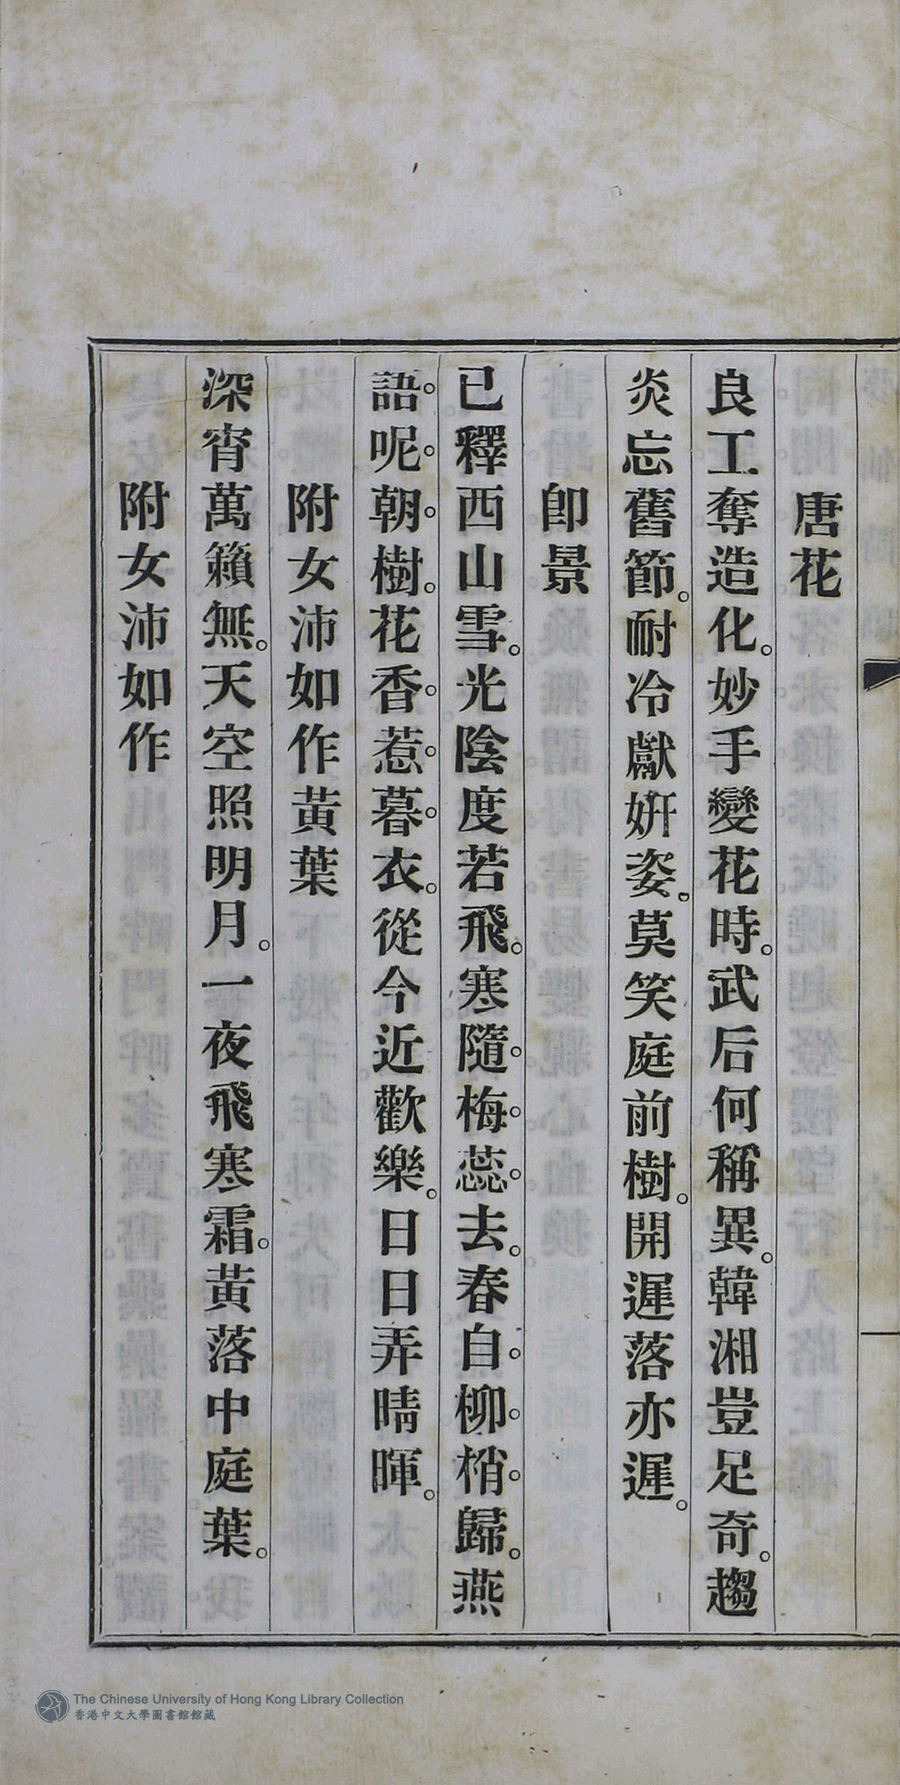 唐花
良工奪造化。妙手變花時。武后何稱異。韓湘豈足奇。趨
炎忘舊節。耐冷獻妍姿。莫笑庭前樹。開遲落亦遲。
卽景
已釋西山雪。光陰度若飛。寒隨。梅。蕊。去。春自。柳。梢。歸。燕
語。呢。朝。樹。花香。惹。暮。衣。從今近歡樂。日日弄晴暉。
附女沛如作黃葉
深宵萬籟無。天空照明月。一夜飛寒霜。黃落中庭葉。
附女沛如作
The Chinese University of Hong Kong Library Collection
香港中文大學圖書館館藏